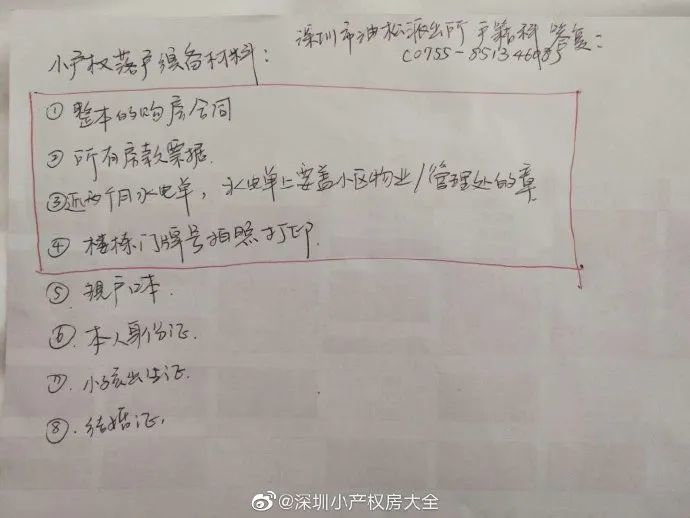 小产权落户须备材料：
深圳市油松派出所 户籍科 答复：
(0755-85134608)
① 整本的购房合同
② 所有房款票据.
③ 近两个月水电单，水电单上要盖小区物业/管理处的章
④ 楼栋门牌号拍照打印.
⑤ 现户口本.
⑥. 本人身份证.
⑦. 小孩出生证.
⑧. 结婚证.
@深圳小产权房大全